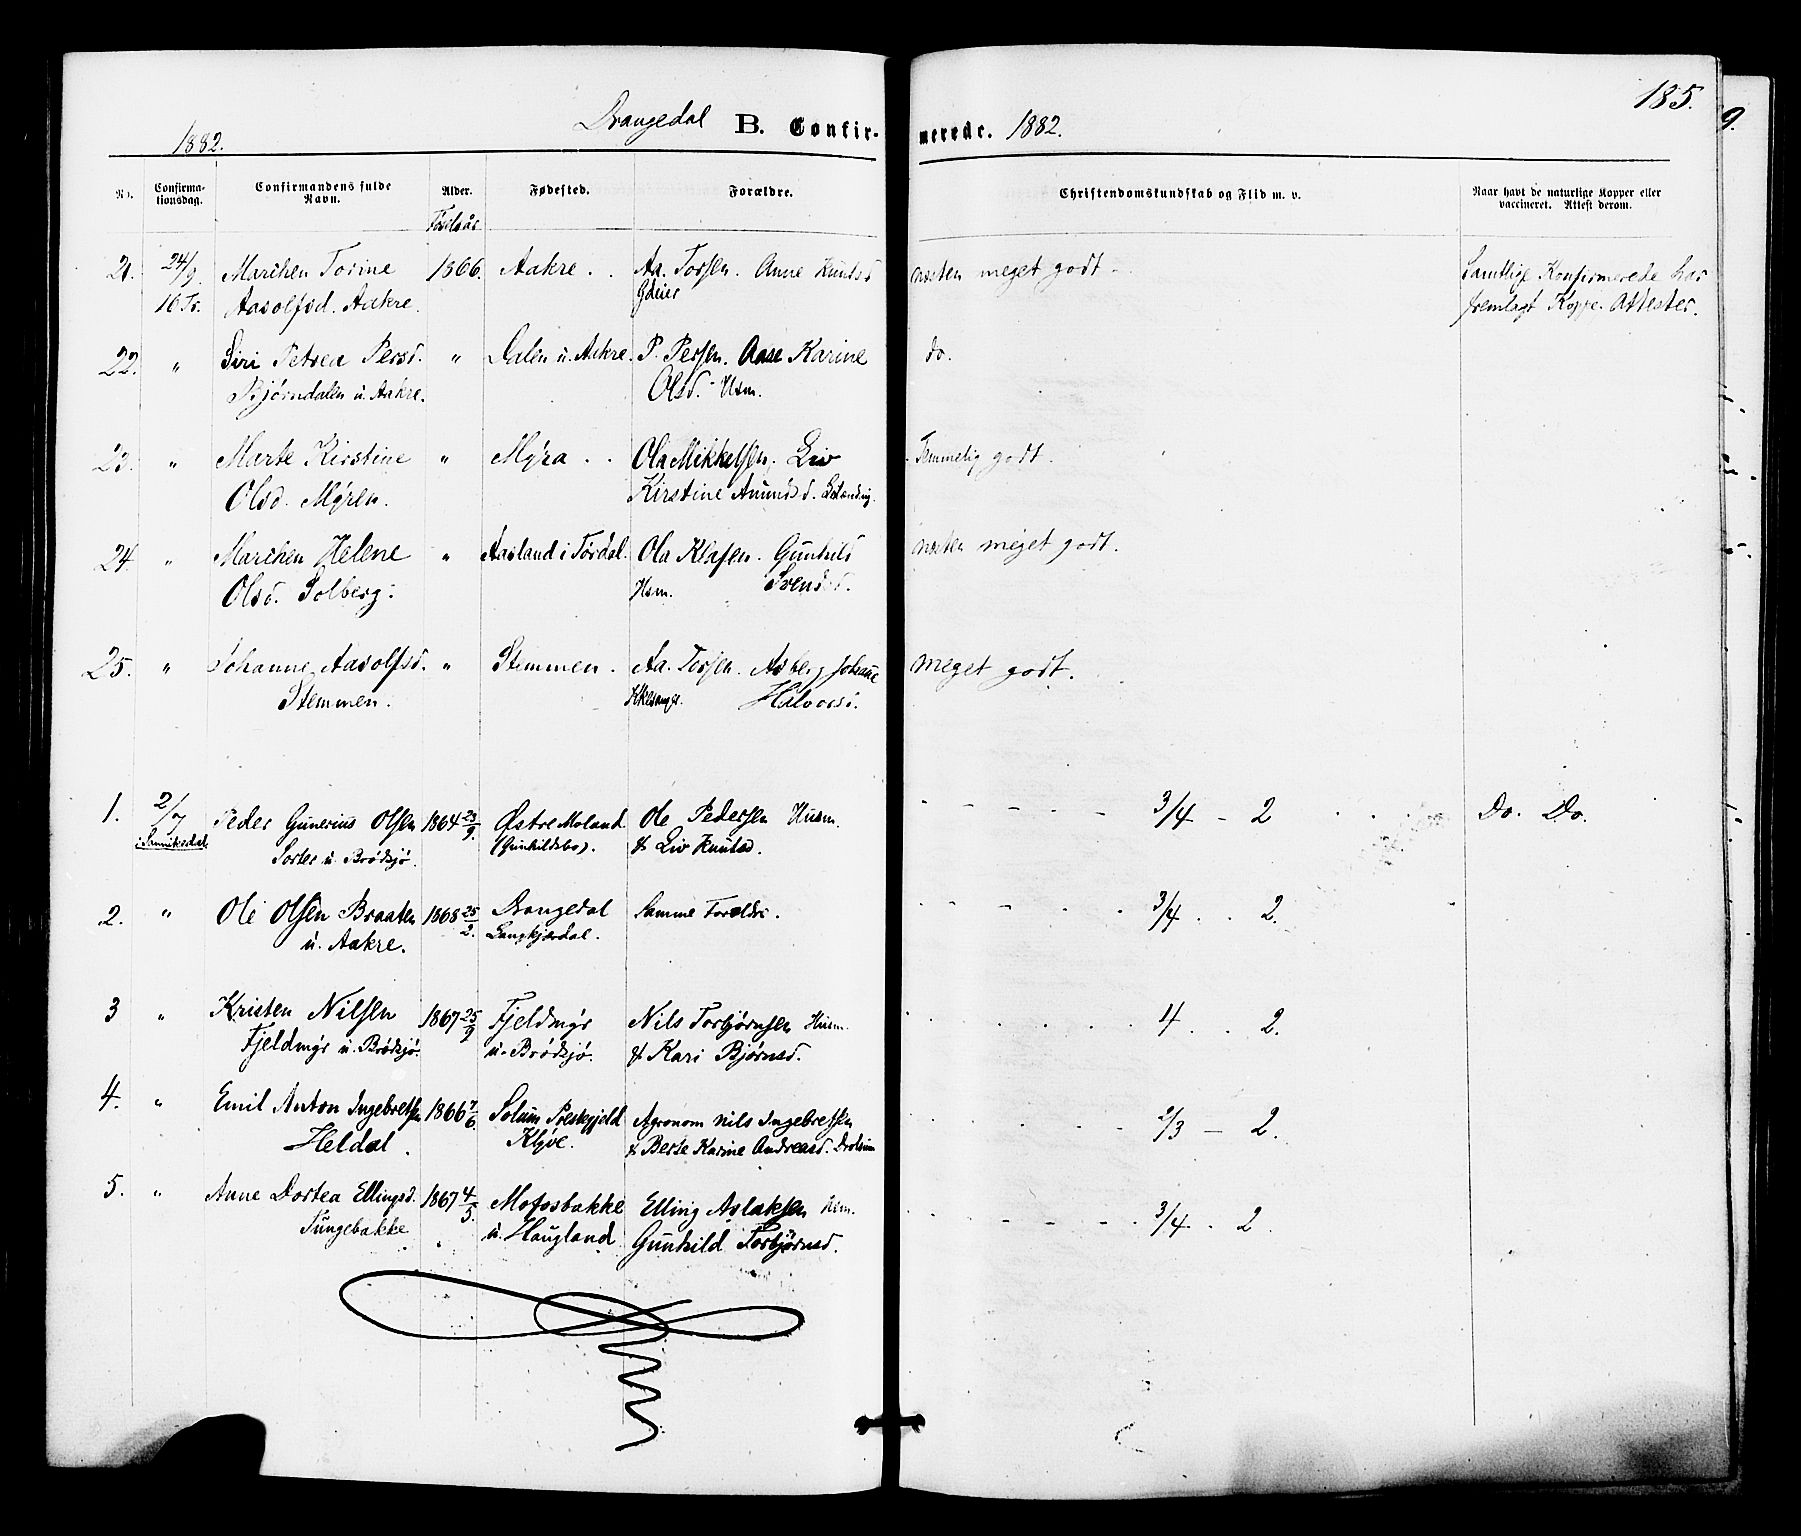 185.
9.
1882. Drangedal B. Confir- merede. 1882.
No. Confirma-tionsdag. Confirmandens fulde Navn. Alder. Fødselsår Fødested. Forældre. Christendomskundskab og Flid m. v. Naar havt de naturlige Kopper eller vaccineret. Attest derom.
21. 24/9 Marthen Torine 1866. Aakre. . Aa. Torsen. Anne Knutsd næsten meget godt - Samtlige Konfirmerede har
16 Tr. Aasolfsd. Aakre. Gdeier fremlagt Koppe-Attester.
22. " Siri Petrea Persd. " Dalen u. Aakre. P. Persen. Aase Karine do.
Bjørndalen u. Aakre. Olsd. - Husm.
23. " Marte Kirstine " Myra . . Ola Mikkelsen. Liv Temmelig godt.
Olsd. Myren. Kirstine Amundsd.
24. " Marthen Helene " Aasland i Tørdal. Ola Klasen. Gunhild næsten meget godt.
Olsd. Solberg. Husm. Svensd.
25. " Johanne Aasolfsd. " Stemmen. Aa. Torsen. Asberg Johanne meget godt.
Stemmen. Kkesanger. Halvorsd.
1. 2/7 Peder Gunerius Olsen 1864 23/9. Østre Moland Ole Pedersen Husm. - - - - 3/4 - 2 Do. Do.
i Sannikedal Sorter u. Brødsjø. (Gunhildsbo). & Liv Knutsd.
2. " Ole Olsen Braaten 1868 25/2. Drangedal Samme Foreldre. 3/4 . . 2.
u. Aakre. Langkjærdal.
3 " Kristen Nilsen 1867 25/9 Fjeldmyr Nils Torbjørnsen Husm. 4 . . 2.
Fjeldmyr u. Brødsjø. u. Brødsjø. & Kari Bjørnsd.
4. " Emil Anton Ingebretsen 1866 7/6. Solum Prestegjeld Agronom Nils Ingebretsen 2/3 - 2.
Heldal. Klyve. & Berte Karine Andreasd.
5. " Anne Dortea Ellingsd. 1867 4/5. Mofosbakke Elling Aslaksen Husm. 3/4 . 2.
Tungebakke u. Haugland Gunhild Torbjørnsd.